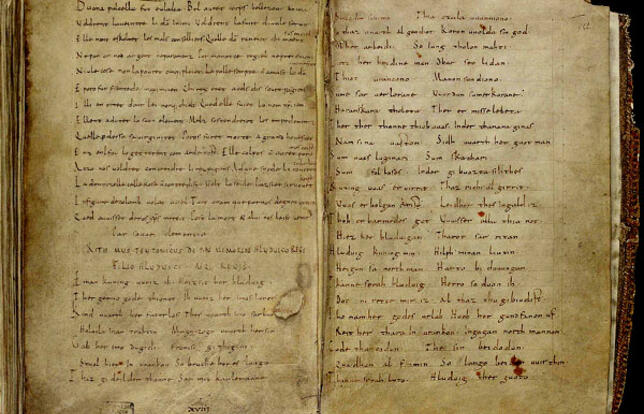 Buona pulcella fut eulalia. Bel auret corps bellezour anima
Voldrent la ueintre li dō inimi. Voldrent la faire diaule seruir
Elle nont eskoltet les mals conselliers. Quelle dō raneiet chi maent
Ne por or ned argent ne paramenz. Por manatce regiel ne preiement
Niule cose non la pouret omq; pleier. La polle sempre n̄ amast lo dō
E poro fut presentede maximiien. Chi rex eret a cels dis soure pagiens
Il li enortet dont lei nonq; chielt. Qued elle fuiet lo nom xp̄iien
Ellent adunet lo suon element. Melz sostendreiet les empedementz
Quelle perdesse sa uirginitet. Poros furet morte a grand honestet
Enz enl fou lo getterent com arde tost. Elle colpes n̄ auret poro
Aczo nos uoldret concreidre li rex pagiens. Ad une spede li roueret
La domnizelle celle kose n̄ contredist. Volt lo seule lazsier si ruouet
In figure de colomb uolat a ciel. Tuit oram que por nos degnet preier
Qued auuisset de nos xp̄s mercit. Post la mort & a lui nos laist uenir
Par souue clementia.
RITHMUS TEUTONICUS DE PIAE MEMORIAE HLUDUICO REGE
FILIO HLUDUICI AEQ; REGIS.
Einan kuning uueiz ih. Heizsit her hluduig.
Ther gerno gode thionot. Ih uueiz her imos lonot.
Kind uuarth her faterlos. Thes uuarth imo sar buoz.
Holoda inan truhtin. Magaczogo uuarth her sin.
Gab her imo dugidi. Fronisc githigini.
Stual hier in urankon. So bruche her es lango.
Thaz gideilder thanne. Sar mit karlemanne.
XVIII
Thia czala uuunniono.
So thaz uuarth al gendiot. Koron uuolda sin god.
Ob her arbeidi. So iung tholon mahti.
Liez her heidine man. Obar seo lidan.
Thiot urancono. Manon sundiono.
Sume sar uerlorane. Uuurdun sumerkorane.
Haranskara tholota. Ther er misselebeta.
Ther ther thanne thiob uuas. Inder thanana ginas.
Nam sina uaston. Sidh uuarth her guot man.
Sum uuas luginari. Sum skachari.
Sum fol loses. Inder gibuozta sih thes.
Kuning uuas eruirrit. Thaz richi al girrit.
Uuas erbolgan krist. Leidhor thes ingald iz.
Thoh erbarmedes got. Uuisser alla thia not.
Hiez her hluduigan. Tharot sar ritan.
Hluduig kuning min. Hilph minan liutin.
Heigun sa northman. Harto biduuungan.
Thanne sprah hluduig. Herro so duon ih.
Dot ni rette mir iz. Al thaz thu gibiudist.
Tho nam her godes urlub. Huob her gundfanon uf.
Reit her thara in urankon. Ingagan northmannon.
Gode thancodun. The sin beidodun.
Quadhun al fromin. So lango beidon uuir thin.
Thanne sprah luto. Hluduig ther guoto.